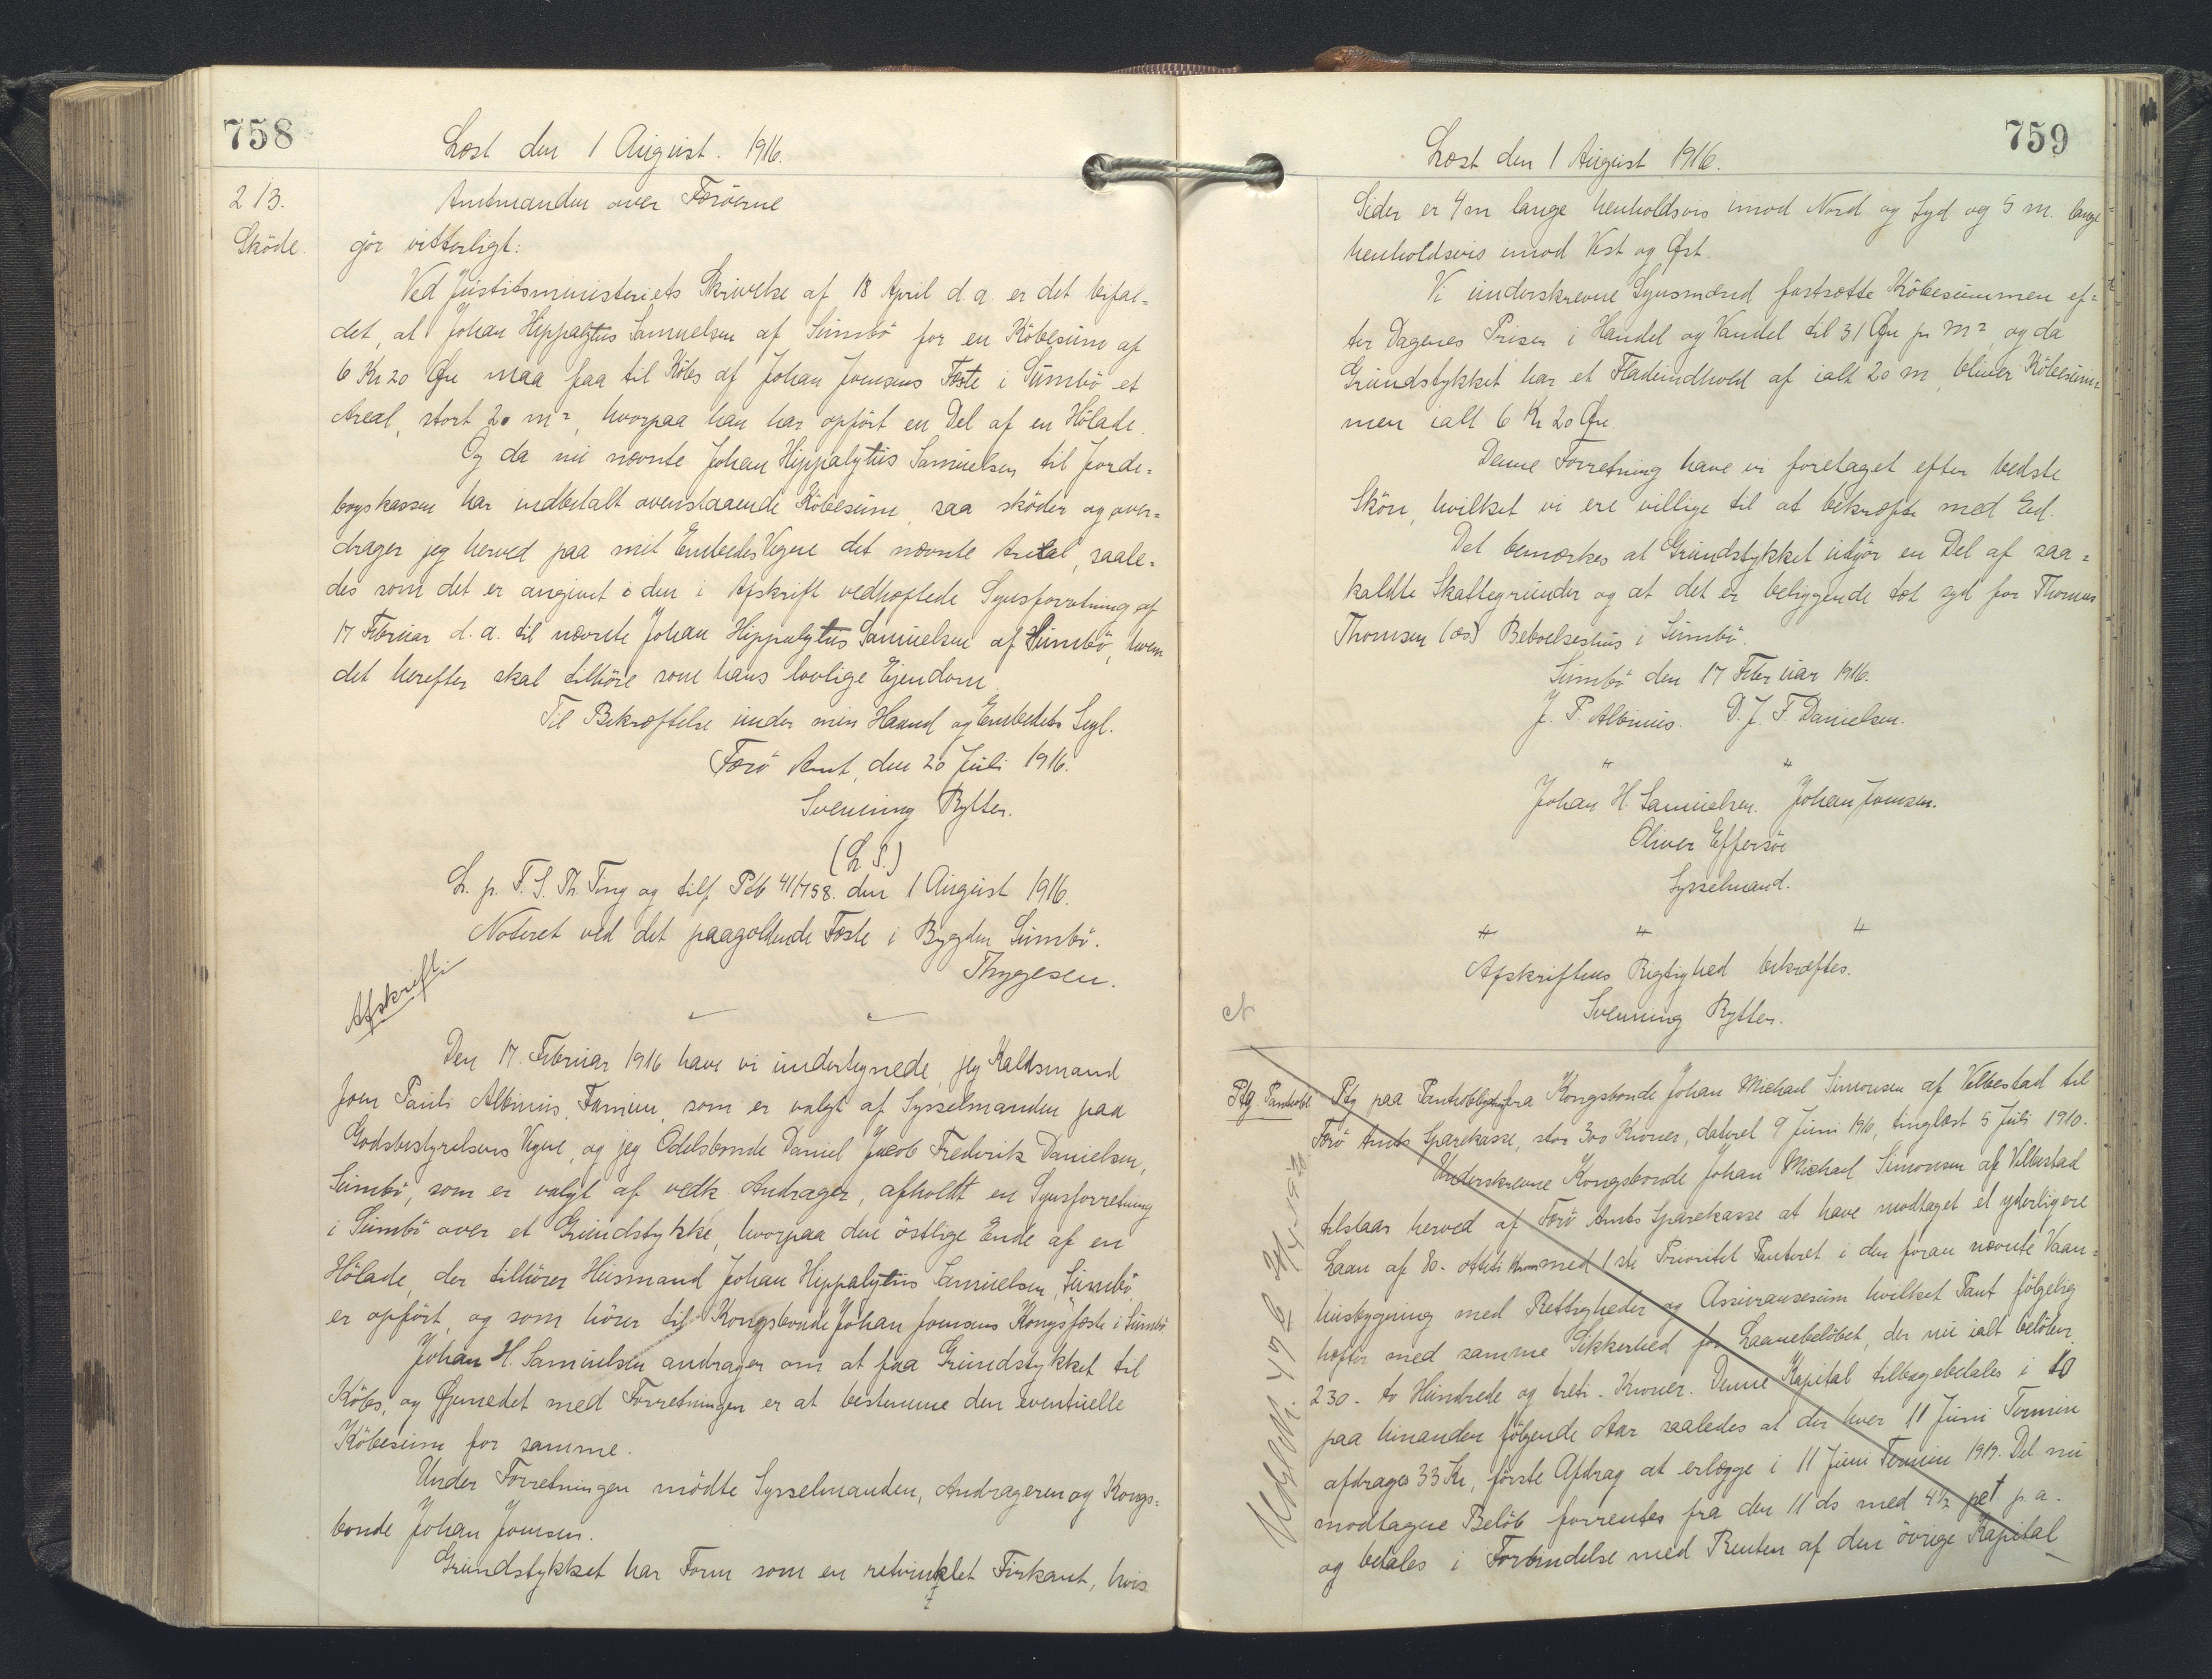 758
Læst den 1 August. 1916.
213.
Skøde.
Amtmanden over Færöerne
gör vitterligt:
Ved Justitsministeriets Skrivelse af 18 April d.a. er det bifal-
det, at Johan Hippalytus Samuelsen af Sumbö for en Köbesum af
6 Kr 20 Øre maa faa til Köbs af Johan Joensens Fæste i Sumbö et
Areal, stort 20 m², hvorpaa han har opfört en Del af en Hölade.
Og da nu nævnte Johan Hippalytus Samuelsen til Jorde-
bogskassen har indbetalt ovenstaaende Köbesum, saa sköder og over-
drager jeg herved paa mit Embedes Vegne det nævnte Areal, saale-
des som det er angivet i den i Afskrift vedhæftede Synsforretning af
17 Februar d.a. til nævnte Johan Hippalytus Samuelsen af Sumbö, hvem
det herefter skal tilhöre som hans lovlige Ejendom.
Til Bekræftelse under min Haand og Embedets Segl.
Færö Amt, den 20 Juli 1916.
Svenning Rytter.
(L.S.)
L. p. F. S. Th. Ting og tilf. Pdb 41/758. den 1 August 1916.
Noteret ved det paagældende Fæste i Bygden Sumbö.
Thygesen.
Afskrift.
Den 17. Februar 1916 have vi undertegnede, jeg Kaldsmand
Joen Pauli Albinus, Famien, som er valgt af Sysselmanden paa
Godsbestyrelsens Vegne, og jeg Odelsbonde Daniel Jacob Frederik Danielsen,
Sumbö, som er valgt af vedk. Andrager, afholdt en Synsforretning
i Sumbö over et Grundstykke, hvorpaa den östlige Ende af en
Hölade, der tilhører Husmand Johan Hippalytus Samuelsen, Sumbö,
er opfört, og som hörer til Kongsbonde Johan Joensens Kongsfæste i Sumbö
Johan H. Samuelsen andrager om at faa Grundstykket til
Köbs, og Øjemedet med Forretningen er at bestemme den eventuelle
Köbesum for samme.
Under Forretningen mödte Sysselmanden, Andrageren og Kongs-
bonde Johan Joensen.
Grundstykket har Form som en retvinklet Firkant, hvis
759
Læst den 1 August 1916.
Sider er 4 m lange henholdsvis imod Nord og Syd og 5 m. lange
henholdsvis imod Vest og Øst.
Vi underskrevne Synsmænd fastsætte Köbesummen ef-
ter Dagenes Priser i Handel og Vandel til 31 Øre pr m², og da
Grundstykket har et Fladeindhold af ialt 20 m, bliver Köbesum-
men ialt 6 Kr 20 Øre.
Denne Forretning have vi foretaget efter bedste
Skön, hvilket vi ere villige til at bekræfte med Ed.
Det bemærkes at Grundstykket udgör en Del af saa-
kaldte Skattegrunder og at det er beliggende tæt syd for Thomas
Thomsen Beboelseshus i Sumbö.
Sumbö den 17 Februar 1916.
J. P. Albinus. D. J. F. Danielsen.
" "
Johan H. Samuelsen. Johan Joensen.
Oliver Effersöe
Sysselmand.
" " "
Afskriftens Rigtighed bekræftes.
Svenning Rytter.
Ptg. Pantobl.
Ptg paa Pantobligation fra Kongsbonde Johan Michael Simonsen af Velbestad til
Færö Amts Sparekasse, stor 300 Kroner, dateret 9 Juni 1910, tinglæst 5 Juli 1910.
Underskrevne Kongsbonde Johan Michael Simonsen af Velbestad
tilstaar herved af Færö Amts Sparekasse at have modtaget et yderligere
Laan af 80 - otteti Kroner med 1ste Prioritet Panteret i den foran nævnte Vaan-
husbygning med Rettigheder og Assurancesum hvilket Pant fölgelig
hæfter med samme Sikkerhed for Laanebelöbet, der nu ialt belöber
230 - to Hundrede og treti - Kroner. Denne Kapital tilbagebetales i 10
paa hinanden fölgende Aar saaledes at der hver 11 Juni Termin
afdrages 33 Kr, förste Afdrag at erlægge i 11 Juni Termin 1917. Det nu
modtagne Belöb forrentes fra den 11 ds med 4½ pct p.a.
og betales i Forbindelse med Renten af den övrige Kapital